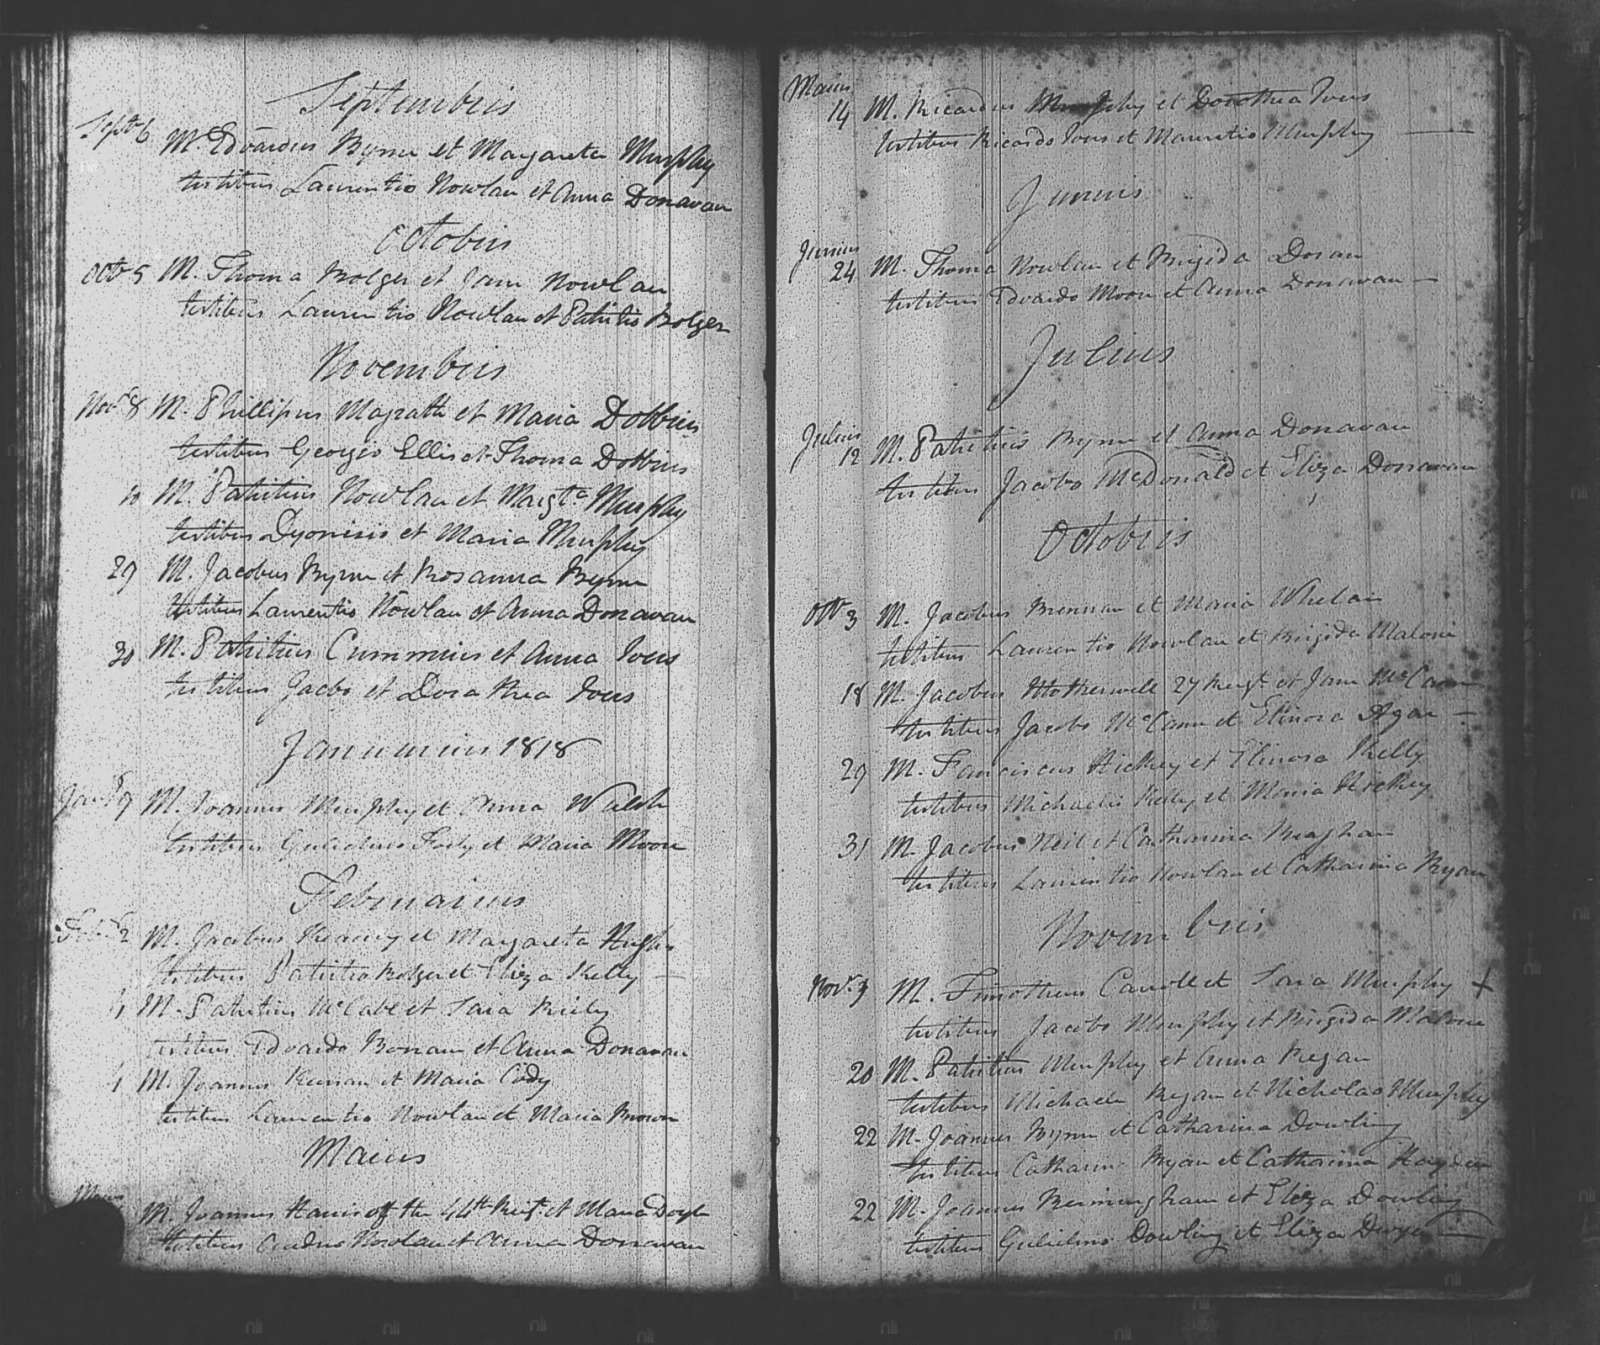 Septembris
Sept 6 M. Edvardus Byrne et Margareta Murphy
testibus Laurentio Nowlan et Anna Donavan
Octobris
Octr 5 M. Thoma Bolger et Jane Nowlan
testibus Laurentio Nowlan et Patritio Bolger
Novembris
Novr 8 M. Phillipus Magrath et Maria Dobbins
testibus Georgio Ellis et Thoma Dobbins
10 M. Patritius Nowlan et Margta Murphy
testibus Dyonisio et Maria Murphy
29 M. Jacobus Byrne et Rosanna Byrne
testibus Laurentio Nowlan et Anna Donavan
30 M. Patritius Cummins et Anna Ivers
testibus Jacobo et Dorathea Ivers
Januarius 1818
Jan 9 M. Joannes Murphy et Anna Walsh
testibus Gulielmus et Maria Moore
Februarius
2 M. Jacobus et Margareta Hughs
testibus Patritio Bolger et Eliza Kelly
4 M. Patritius McCabe et Sara Reily
testibus Edvardo et Anna Donavan
4 M. Joannes et Maria Cody
testibus Laurentio Nowlan et Maria Brown
Maius
M. Joannes Harris of the 44th Regt. et Maria Doyle
testibus Nowlan et Anna Donavan
Maius
14 M. Ricardus Murphy et Dorothea Ivers
testibus Ricardo Ivers et Mauritio Murphy
Junius
Junius
24 M. Thoma Nowlan et Brigida Doran
testibus Edvardo Moore et Anna Donavan
Julius
Julius
12 M. Patritius Byrne et Anna Donavan
testibus Jacobo McDonald et Eliza Donavan
Octobris
Octr 3 M. Jacobus Brennan et Maria Whelan
testibus Laurentio Nowlan et Brigida Malone
18 M. Jacobus Motherwell 27 Regt. et Jane McCann
testibus Jacobo McCann et Elinora Agar
29 M. Franciscus Hickey et Elinora Kelly
testibus Michaelis Kelly et Maria Hickey
31 M. Jacobus Neil et Catharina
testibus Laurentio Nowlan et Catharina Ryan
Novembris
Novr. 9 M. Timotheus Carroll et Sara Murphy +
testibus Jacobo Murphy et Brigida Malone
20 M. Patritius Murphy et Anna Regan
testibus Michaele Ryan et Nicholao Murphy
22 M. Joannes Byrne et Catharina Dowling
testibus Catharina Ryan et Catharina Hayden
22 M. Joannes Bermingham et Eliza Dowling
testibus Gulielmo Dowling et Eliza Dwyer